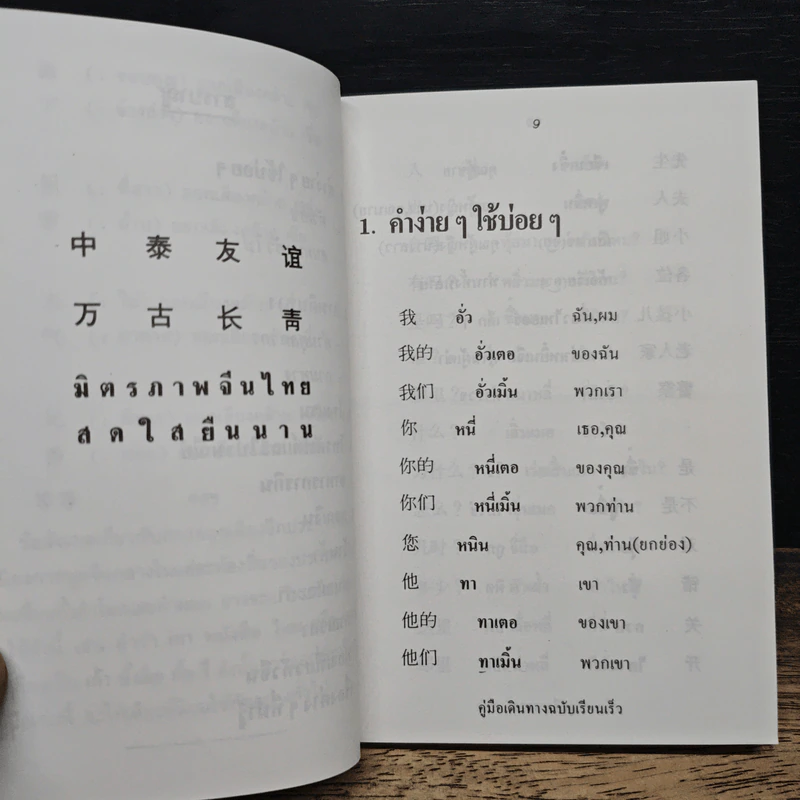 中 泰 友 谊
万 古 长 青
มิตรภาพจีนไทย
สดใสยืนนาน
9
1. คำง่าย ๆ ใช้บ่อย ๆ
我 อั่ว ฉัน,ผม
我的 อั่วเตอ ของฉัน
我们 อั่วเมิ้น พวกเรา
你 หนี่ เธอ,คุณ
你的 หนี่เตอ ของคุณ
你们 หนี่เมิ้น พวกท่าน
您 หนิน คุณ,ท่าน(ยกย่อง)
他 ทา เขา
他的 ทาเตอ ของเขา
他们 ทาเมิ้น พวกเขา
คู่มือเดินทางฉบับเรียนเร็ว